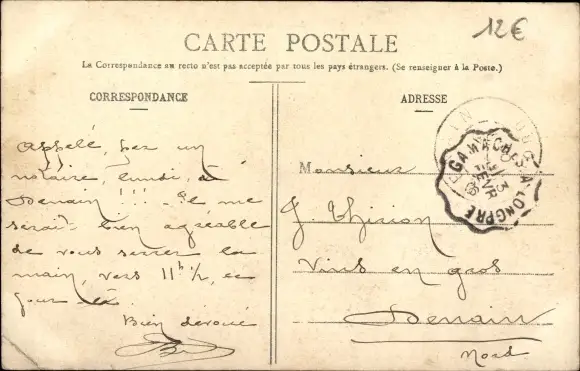 12€
CARTE POSTALE
La Correspondance au recto n'est pas acceptée par tous les pays étrangers. (Se renseigner à la Poste.)
CORRESPONDANCE
Appelé, par un
notaire, lundi, à
Denain !!! - Il me
serait bien agréable
de vous serrer la
main, vers 11h 1/2, ce
jour là.
Bien dévoué
ADRESSE
GAMACHES A LONGPRE
13
FEVR
Monsieur
J. Thirion
Vins en gros
Denain
Nord